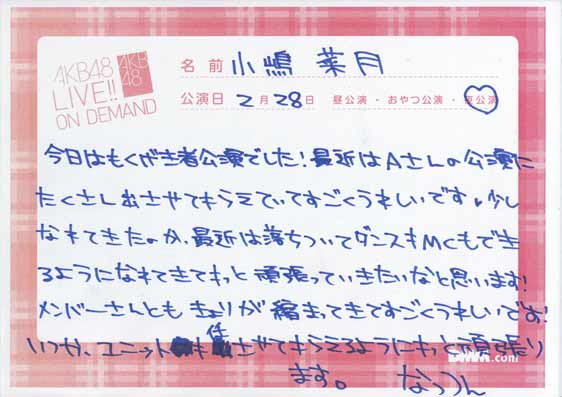 AKB48
LIVE!!
ON DEMAND
AKB
48
名前 小嶋菜月
公演日 2月28日 昼公演・おやつ公演・夜公演
今日はもくげき者公演でした!最近はAさんの公演に
たくさん出させてもらえていてすごくうれしいです♥少し
なれてきたのか、最近は落ちついてダンスもMCもでき
るようになれてきてもっと頑張っていきたいなと思います!
メンバーさんともきょりが縮まってきてすごくうれしいです!
いつか、ユニットも任させてもらえるようにもっと頑張り
ます。 なっつん